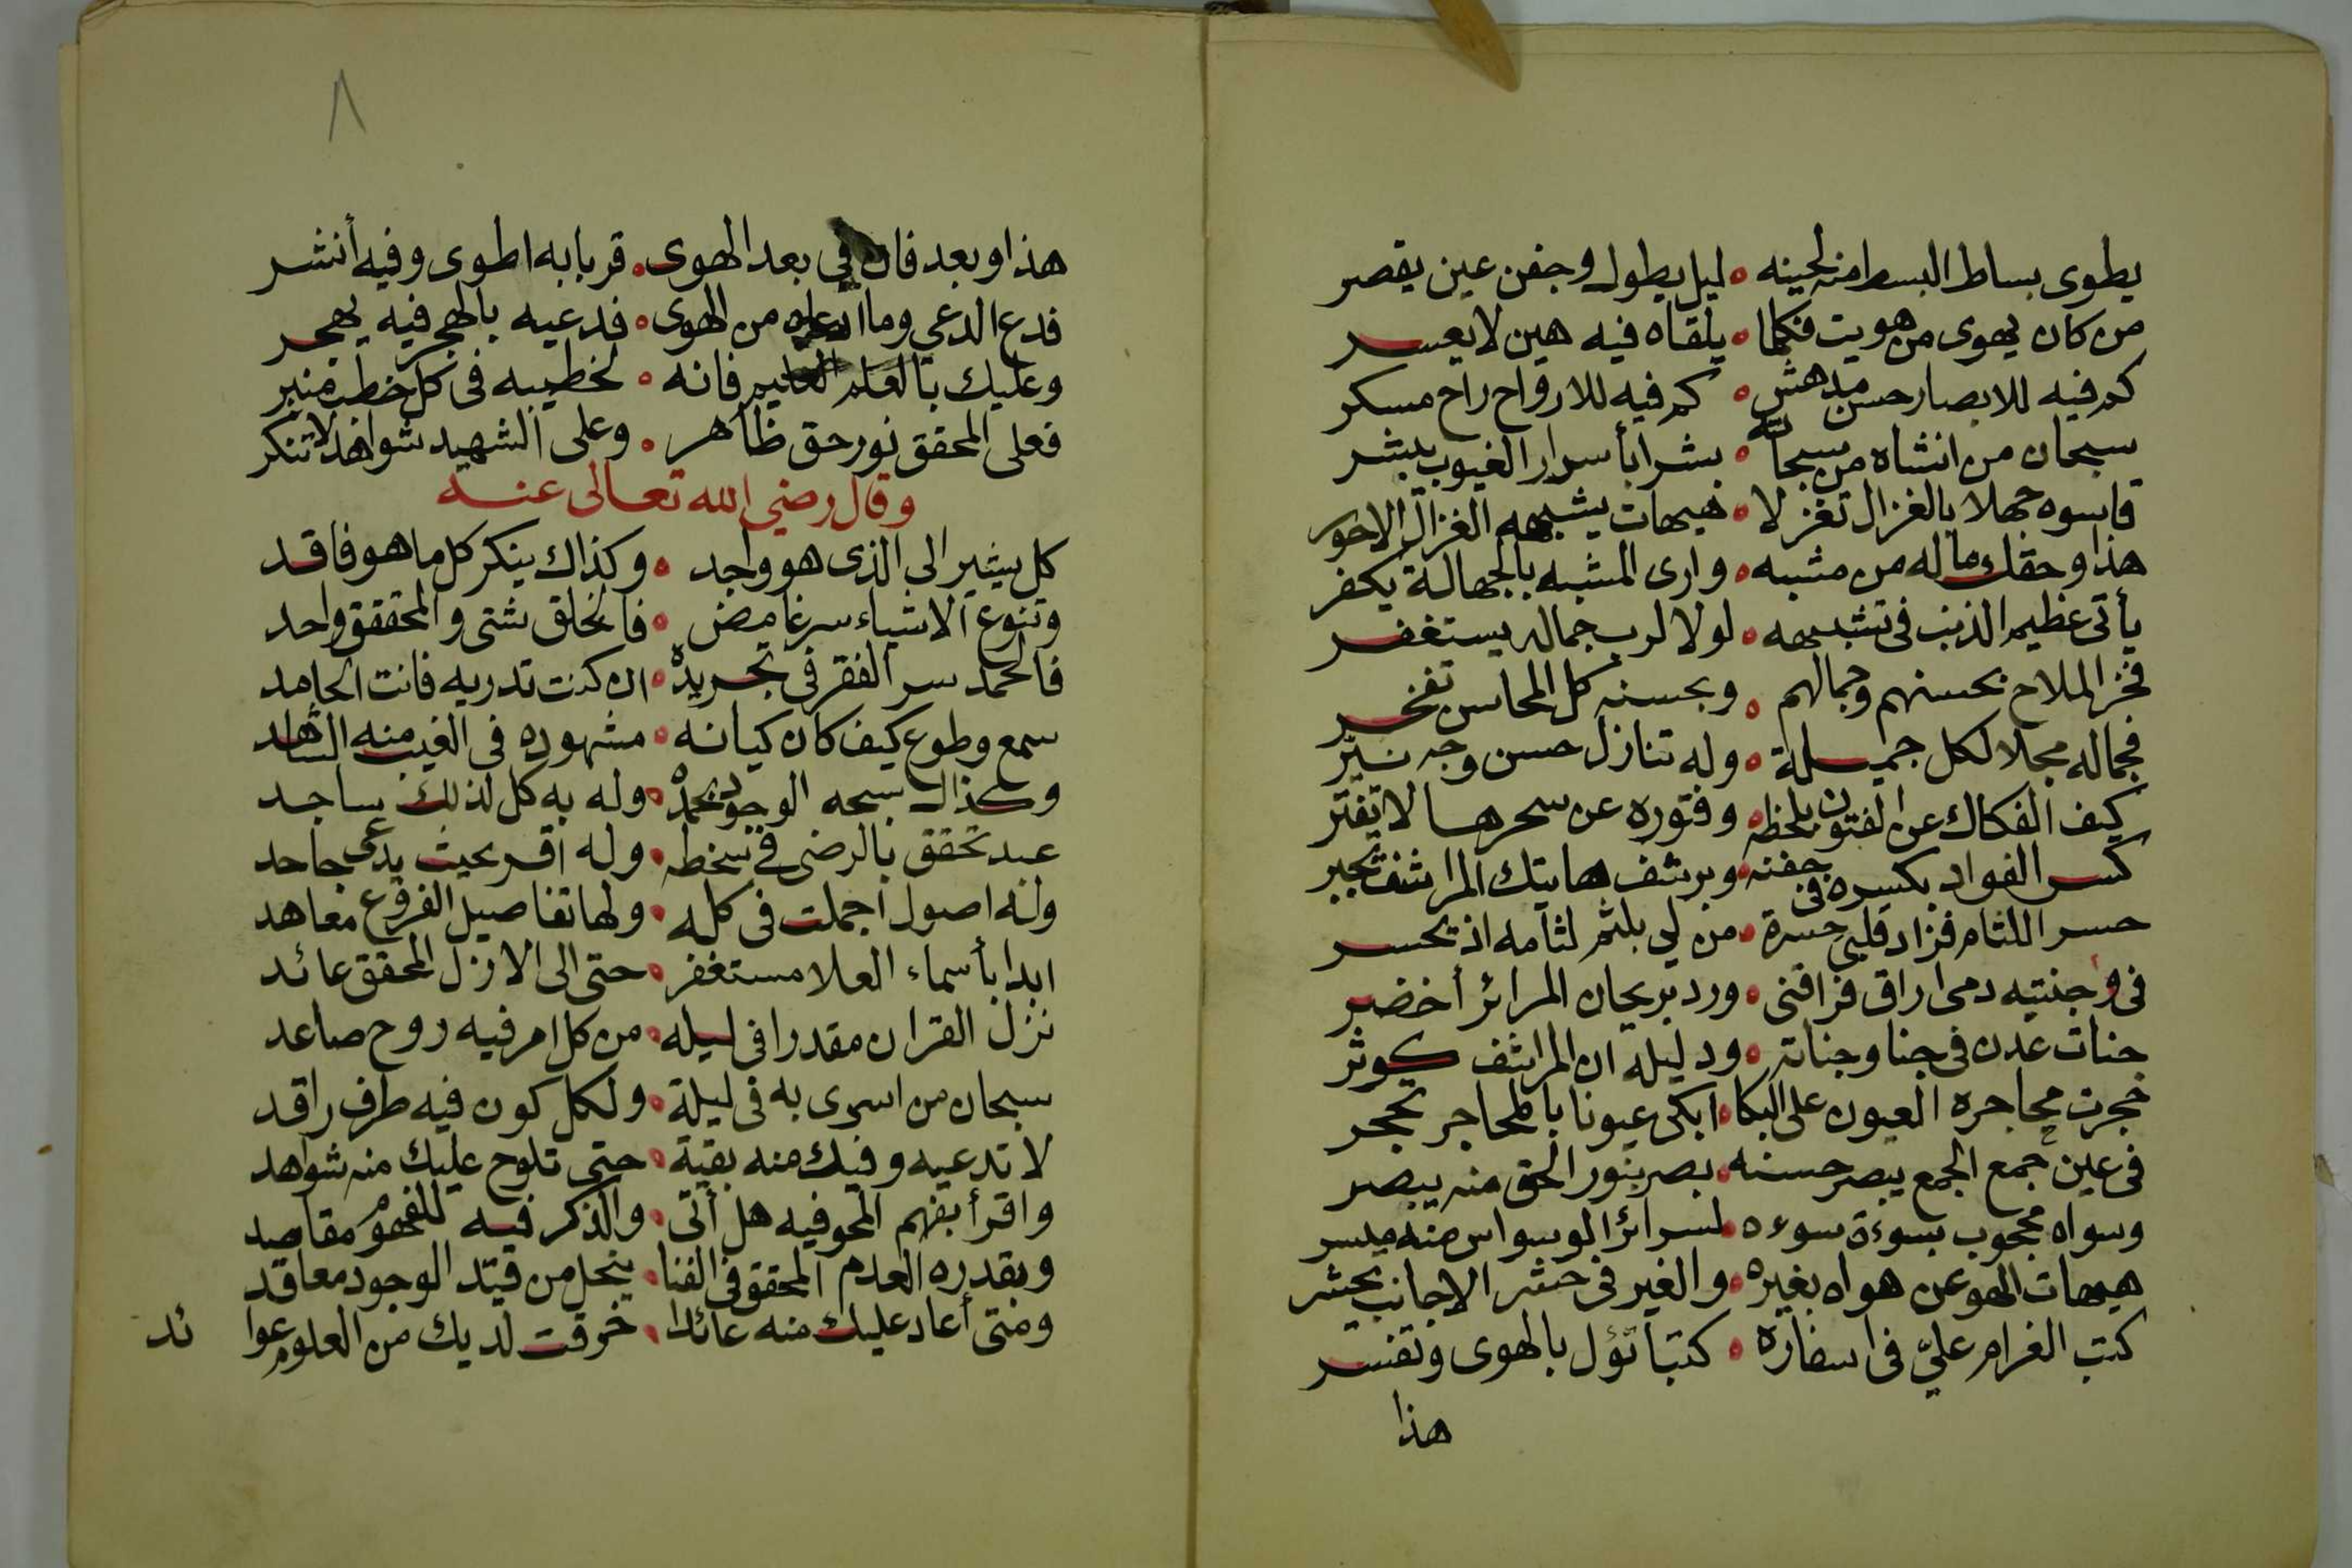 يطوى بساط البسط منه لحينه ٥ ليل يطول وجفن عين يقصر
من كان يهوى من هويت فكلما ٥ يلقاه فيه هين لا يعسر
كم فيه للابصار حسن مدهش ٥ كم فيه للارواح راح مسكر
سبحان من انشاه من سبحاته ٥ بشرا بأسرار الغيوب يبشر
قاسوه جهلا بالغزال تغزلا ٥ هيهات يشبهه الغزال الاحور
هذا وحقك ماله من مشبه ٥ وارى المشبه بالجهالة يكفر
يأتى عظيم الذنب فى تشبيهه ٥ لولا لرب جماله يستغفر
فخر الملاح بحسنهم وجمالهم ٥ وبحسنه كل المحاسن تفخر
فجماله مجلا لكل جميلة ٥ وله تنازل حسن وجه نير
كيف الفكاك عن الفتون بلحظه ٥ وفتوره عن سحرها لا تفتر
كسر الفواد بكسره فى جفنه ٥ وبرشف هاتيك المراشف تجبر
حسر اللثام فزاد قلبى حسرة ٥ من لي بلثم لثامه اذ يحسر
فى وجنتيه دمى اراق فراقنى ٥ ورد بريحان المرائر أخضر
جنات عدن فى جنا وجناته ٥ ودليله ان المراشف كوثر
حجرت محاجره العيون على البكا ٥ ابكى عيونا بالمحاجر تحجر
فى عين جمع الجمع يبصر حسنه ٥ بصر بنور الحق منه يبصر
وسواه محجوب بسوءة سوءه ٥ لسرائر الوسواس منه ميسر
هيهات الهو عن هواه بغيره ٥ والغير فى حشر الاجانب يحشر
كتب الغرام عليّ فى اسفاره ٥ كتبا تؤل بالهوى وتفسر
هذا
٨
هذا وبعد فان في بعد الهوى ٥ قربا به اطوى وفيه أنشر
فدع الدعي وما ادعاه من الهوى ٥ فدعيه بالهجر فيه يهجر
وعليك بالعلم العليم فانه ٥ لخطيبه فى كل خطب منبر
فعلى المحقق نور حق ظاهر ٥ وعلى الشهيد شواهد لا تنكر
وقال رضي الله تعالى عنه
كل يشير الى الذى هو واجد ٥ وكذاك ينكر كل ما هو فاقد
وتنوع الاشياء سر غامض ٥ فالخلق شتى والمحقق واحد
فالحمد سر الفقر فى تجريده ٥ ان كنت تدريه فانت الحامد
سمع وطوع كيف كان كيانه ٥ مشهوده فى الغيب منه الشاهد
وكذاك سبحه الوجود بحمده ٥ وله به كل لذلك ساجد
عبد تحقق بالرضى في سخطه ٥ وله اقر بحيث يدعى جاحد
وله اصول اجملت فى كله ٥ ولها تفاصيل الفروع معاهد
ابدا بأسماء العلا مستغفر ٥ حتى الى الازل المحقق عائد
نزل القران مقدرا فى ليله ٥ من كل امر فيه روح صاعد
سبحان من اسرى به فى ليلة ٥ ولكل كون فيه طرف راقد
لا تدعيه وفيك منه بقية ٥ حتى تلوح عليك منه شواهد
واقرأ بفهم المحو فيه هل أتى ٥ والذكر فيه للفهوم مقاصد
وبقدره العدم المحقق فى الفنا ٥ ينحل من قيد الوجود معاقد
ومتى أعاد عليك منه عائدا ٥ خرقت لديك من العلوم عوا
ئد